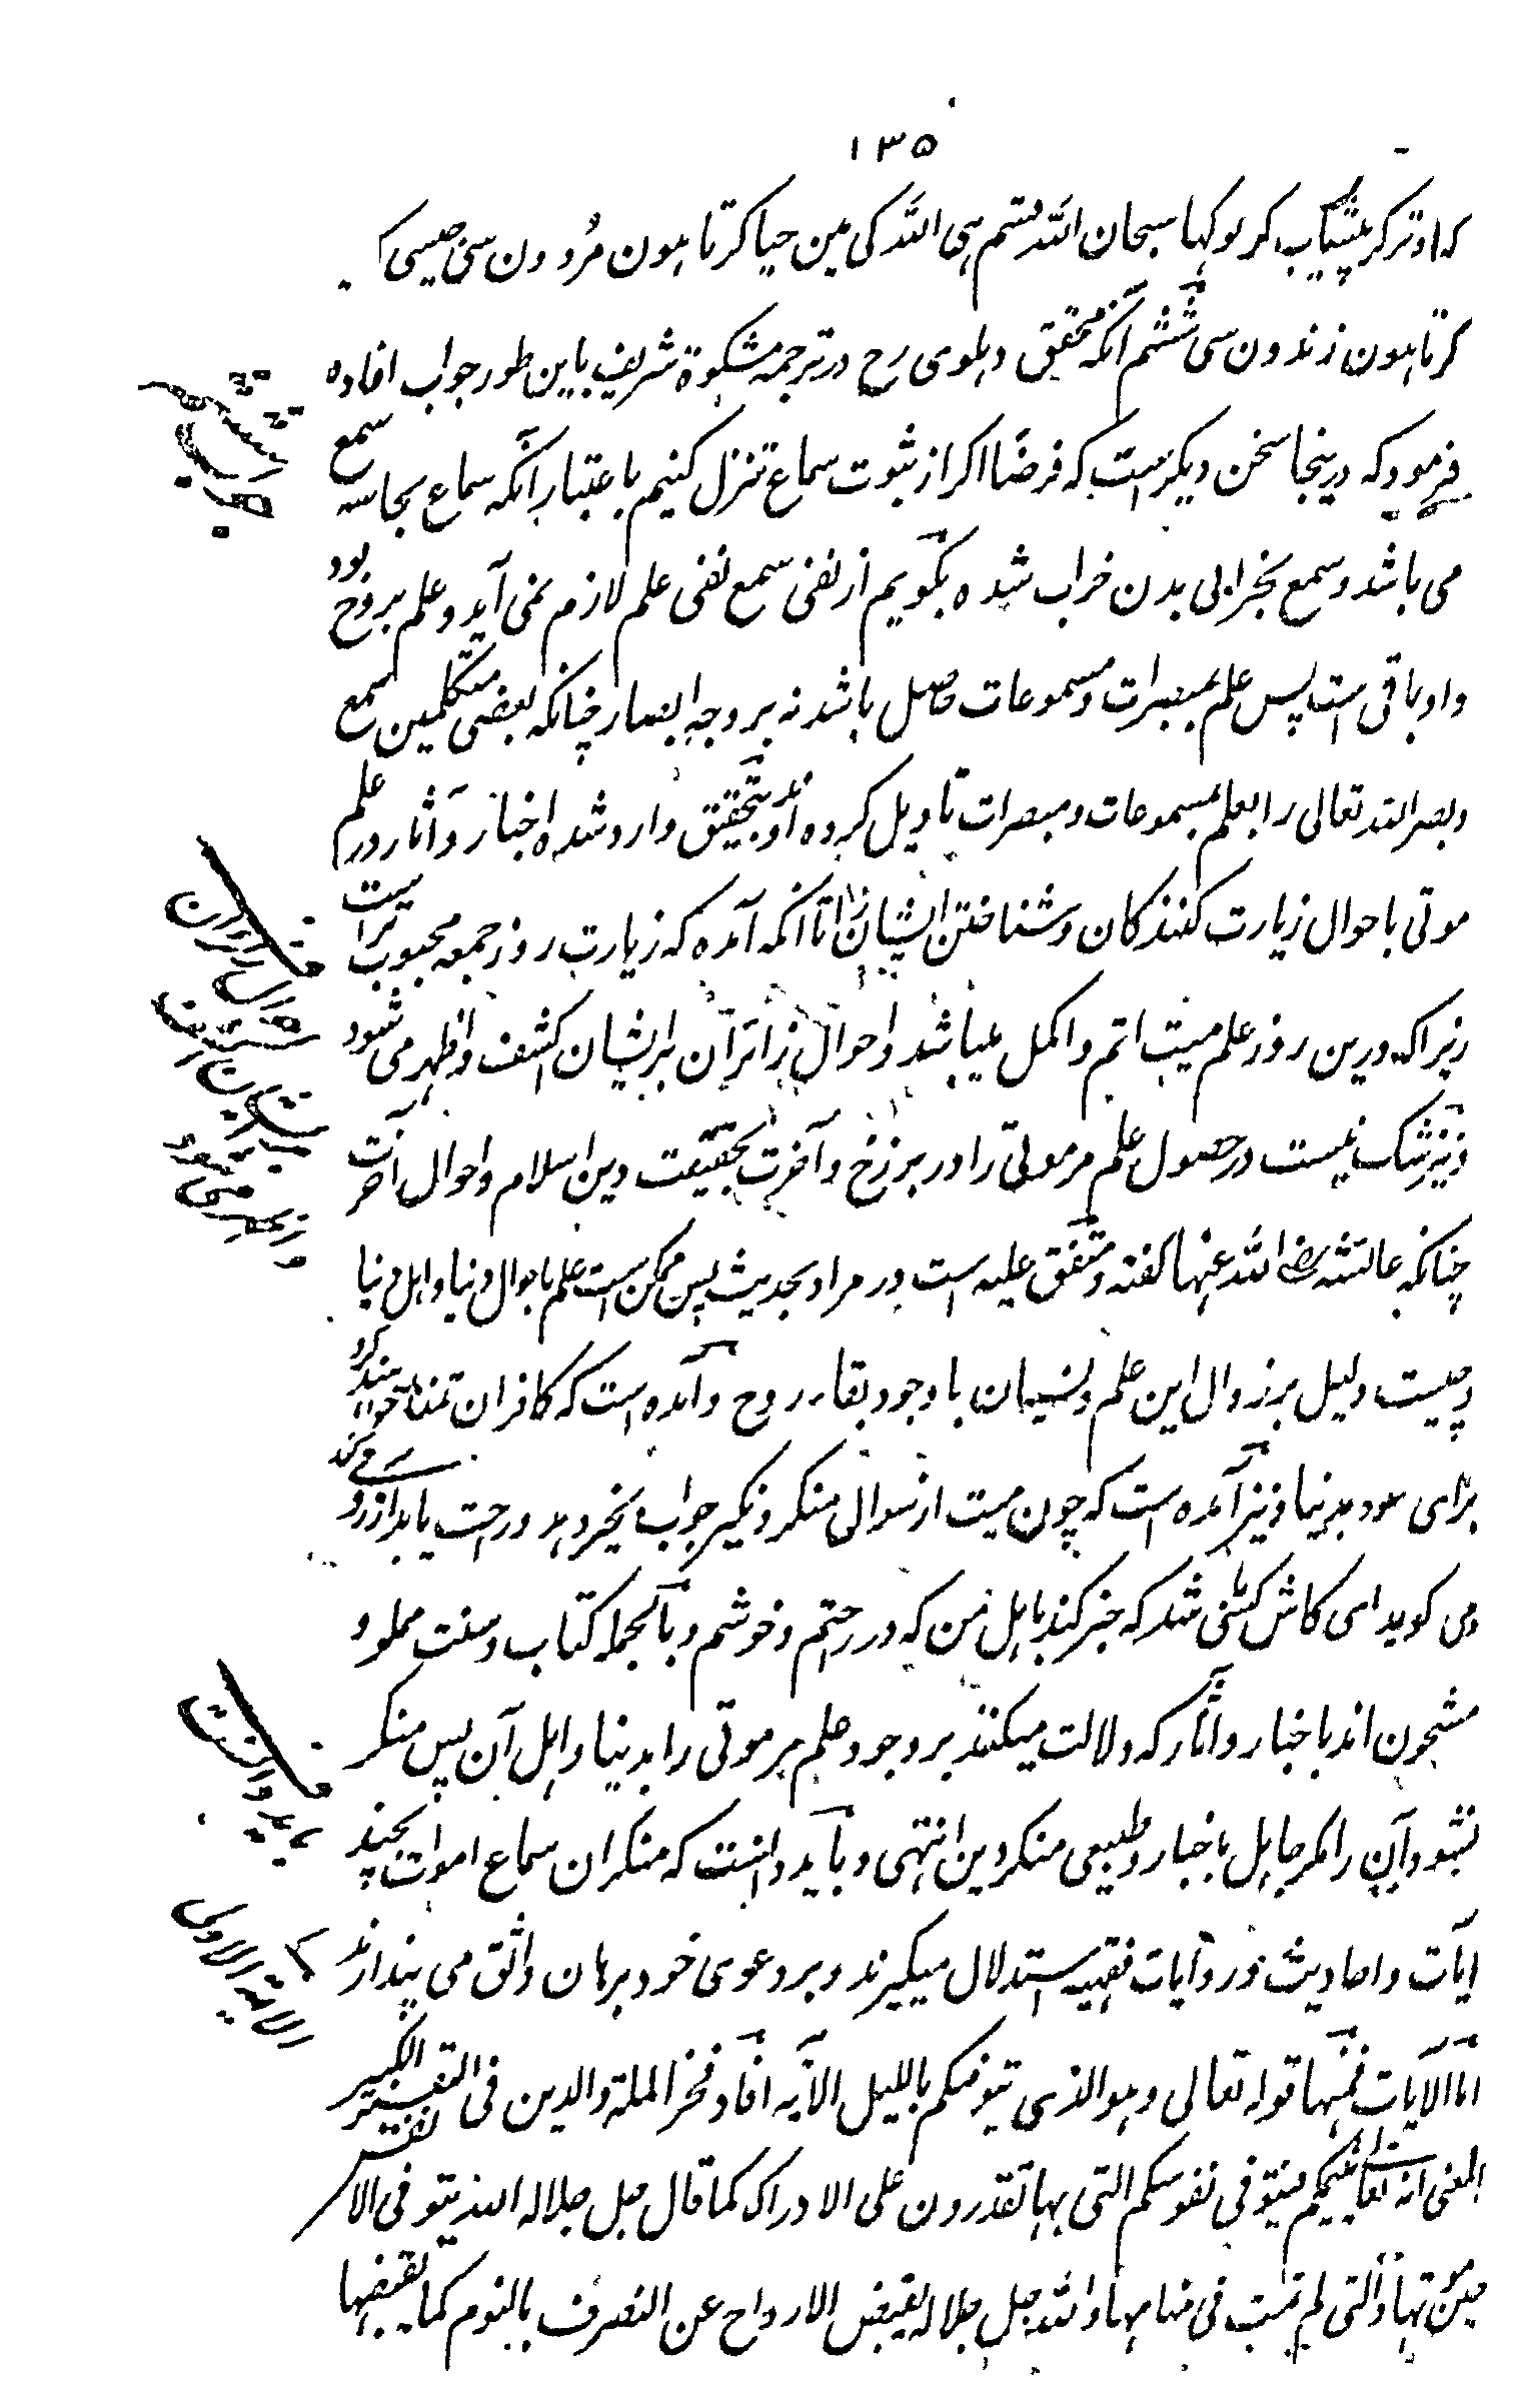 ۱۳۵
کہ اوتر کر پیشاب کر لو کہا سبحان اللہ قسم ہی اللہ کی مین حیا کرتا ہون مُردون سی جیسی کہ
کرتا ہون زندون سی ششم آنکہ محقق دہلوی رح در ترجمہ مشکوة شریف باین طور جواب افادہ
فرمود کہ درینجا سخن دیگر است کہ فرضًا اگر از ثبوت سماع تنزل کنیم باعتبار آنکہ سماع بحاسہ سمع
می باشد و سمع بخرابی بدن خراب شدہ بگویم از نفی سمع نفی علم لازم نمی آید و علم بروح بود
و او باقی است پس علم بمبصرات و مسموعات حاصل باشد نہ بر وجہ ابصار چنانکہ بعضی متکلمین سمع
و بصر اللہ تعالی را بعلم بمسموعات و مبصرات تاویل کردہ اند و بتحقیق وارد شدہ اخبار و آثار در علم
موتی باحوال زیارت کنندگان و شناختن ایشان را تا آنکہ آمدہ کہ زیارت روز جمعہ محبوب تر است
زیراکہ درین روز علم میت اتم و اکمل میباشد و احوال زائران برایشان اکشف و اظہر می شود
و نیز شک نیست در حصول علم مر موتی را در برزخ و آخرت بحقیقت دین اسلام و احوال آخرت
چنانکہ عائشہ رضی اللہ عنہا گفتہ و متفق علیہ است در مراد بحدیث پس ممکن است علم باحوال دنیا و اہل دنیا
و چیست دلیل بر زوال این علم و نسیان با وجود بقاء روح و آمدہ است کہ کافران تمنا خواہند کرد
برای عود بدنیا و نیز آمدہ است کہ چون میت از سوال منکر و نکیر جواب بخیر دہد و راحت یابد آرزو می کند
می گوید ای کاش کسی شد کہ خبر کند باہل من کہ در راحتم و خوشم و بالجملہ کتاب و سنت مملو و
مشحون اند باخبار و آثار کہ دلالت میکنند بر وجود علم مر موتی را بدنیا و اہل آن پس منکر
نشود آن را مگر جاہل باخبار و طبیعی منکر دین انتہی و باید دانست کہ منکران سماع اموات بچند
آیات و احادیث و روایات فقہیہ استدلال میگیرند و بر دعوی خود برہان واثق می پندارند
اما الآیات فمنہا قولہ تعالی وہو الذی یتوفیکم باللیل الآیہ افاد فخر الملة والدین فی التفسیر الکبیر
المعنی انہ تعالی ینیمکم فیتوفی نفوسکم التی بہا تقدرون علی الادراک کما قال جل جلالہ اللہ یتوفی الانفس
حین موتہا والتی لم تمت فی منامہا واللہ جل جلالہ یقبض الارواح عن التصرف بالنوم کما یقبضہا